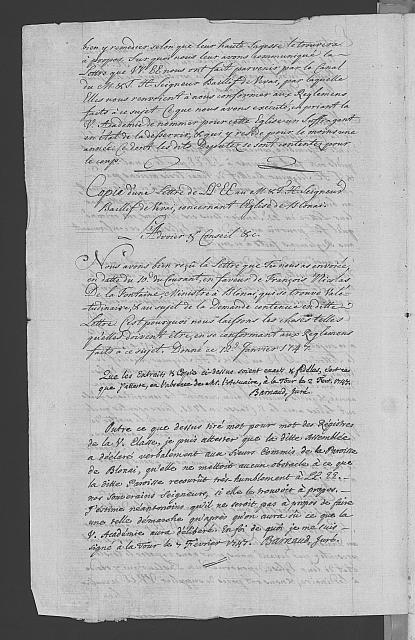 bien y remedier selon que leur haute Sagesse le trouvera
à propos. Sur quoi nous leur avons communiqué la
Lettre que VV. EE. nous ont fait parvenir, par le Canal
du M. & T. H. Seigneur Baillif de Vevai, par laquelle
Elles nous renvoient à nous conformer aux Reglemens
faits à ce sujet. Ce que nous avons executé, en priant la
V. Academie de nommer pour cette Eglise un Suffragant
en état de la desservir, & qui y reside, pour le moins une
année. Ce dont les dits Deputés se sont contentés, pour
le coup.
Copie d'une Lettre de LL. EE. au M. & T. H. Seigneur
Baillif de Vevai, concernant l'Eglise de Blonai.
Avoier & Conseil &c.
Nous avons bien reçu la Lettre que Tu nous as envoiée,
en datte du 10e. du Courant, en faveur de François Nicolas
De la Fontaine, Ministre à Blonai, qui se trouve Valé-
tudinaire, & au sujet de la Demande contenue en dite
Lettre. C'est pourquoi nous laissons les choses telles
qu'elles doivent être, en se conformant aux Reglemens
faits à ce sujet. Donné ce Janvier 1747.
Que les Extraits & Copie ci dessus soient exacts & fidelles, c'est ce
que j'atteste, en l'absence de Mr. l'Actuaire, à la Tour le 2 Fevr. 1747.
Barnaud, Juré.
Outre ce que dessus tiré mot pour mot des Régistres
de la V. Classe, je puis attester que la dite Assemblée
a déclaré verbalement aux Sieurs Commis de la Paroisse
de Blonai, qu'elle ne mettoit aucun obstacle à ce que
la dite Paroisse recourût très humblement à LL. EE.
nos Souverains Seigneurs, si elle le trouvoit à propos.
J'estime néantmoins, qu'il ne seroit pas à propos de faire
une telle démarche qu'après qu'on aura sû ce que la
V. Académie aura déliberé. En foi de quoi je me suis
signé à la Tour le 7 Fevrier 1747. Barnaud, Juré.